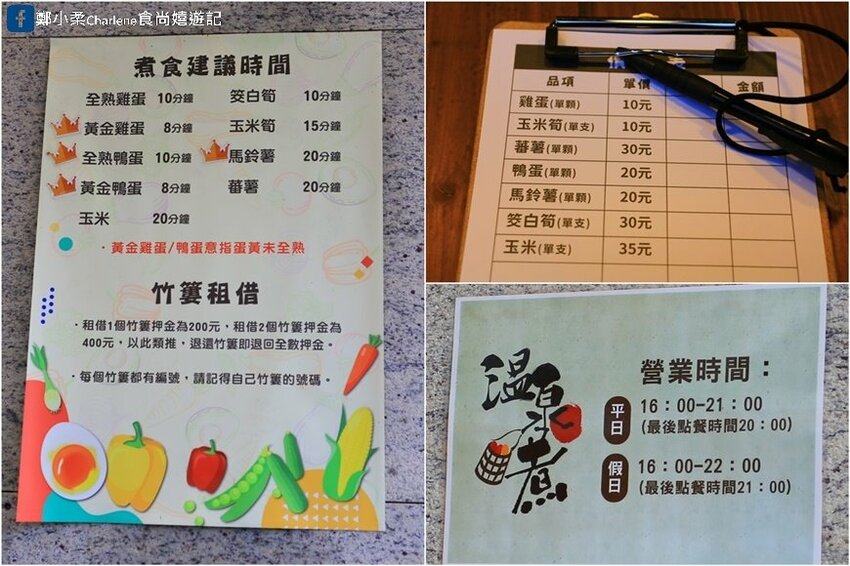 鄭小柔Charlene食尚嬉遊記
煮食建議時間
全熟雞蛋 10分鐘 筊白筍 10分鐘
黃金雞蛋 8分鐘 玉米筍 15分鐘
全熟鴨蛋 10分鐘 馬鈴薯 20分鐘
黃金鴨蛋 8分鐘 蕃薯 20分鐘
玉米 20分鐘
・黃金雞蛋/鴨蛋意指蛋黃未全熟
竹簍租借
・租借1個竹簍押金為200元，租借2個竹簍押金為
400元，以此類推，退還竹簍即退回全數押金。
・每個竹簍都有編號，請記得自己竹簍的號碼。
品項 單價 金額
雞蛋(單顆) 10元
玉米筍(單支) 10元
蕃薯(單顆) 30元
鴨蛋(單顆) 20元
馬鈴薯(單顆) 20元
筊白筍(單支) 30元
玉米(單支) 35元
溫泉煮
營業時間：
平日 16：00-21：00
(最後點餐時間20：00)
假日 16：00-22：00
(最後點餐時間21：00)